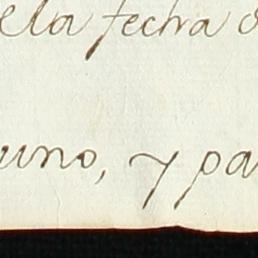 ela fecha d
uno, y pa